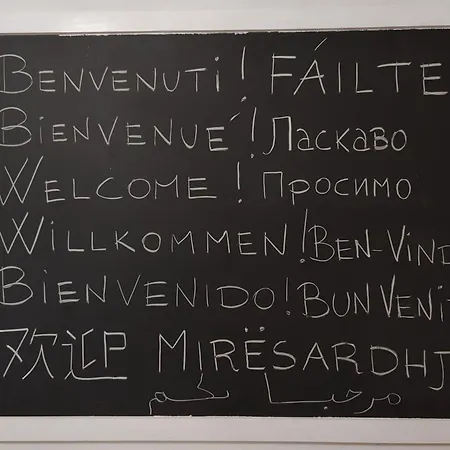 BENVENUTI! FÁILTE
BIENVENUÉ! Ласкаво
WELCOME! Просимо
WILLKOMMEN! BEN-VIND
BIENVENIDO! BUN VENIT
欢迎 MIRËSARDHJ
مرحبا بكم